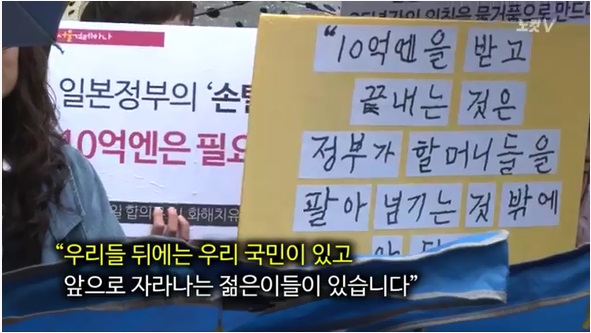 노컷V
서울겨레하나
일본정부의 ‘손
10억엔은 필요
일 합의 화해치유
“10억엔을 받고
끝내는 것은
정부가 할머니들을
팔아 넘기는 것 밖에
“우리들 뒤에는 우리 국민이 있고
앞으로 자라나는 젊은이들이 있습니다”